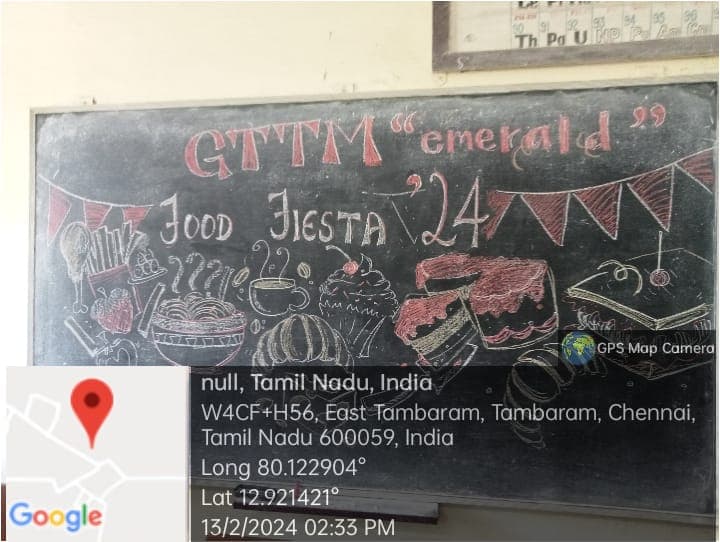 90 91 92 93 94 95
Th Pa U NP Pu Am
GTTM "emerald"
FOOD FIESTA '24
GPS Map Camera
null, Tamil Nadu, India
W4CF+H56, East Tambaram, Tambaram, Chennai,
Tamil Nadu 600059, India
Long 80.122904°
Lat 12.921421°
13/2/2024 02:33 PM
Google